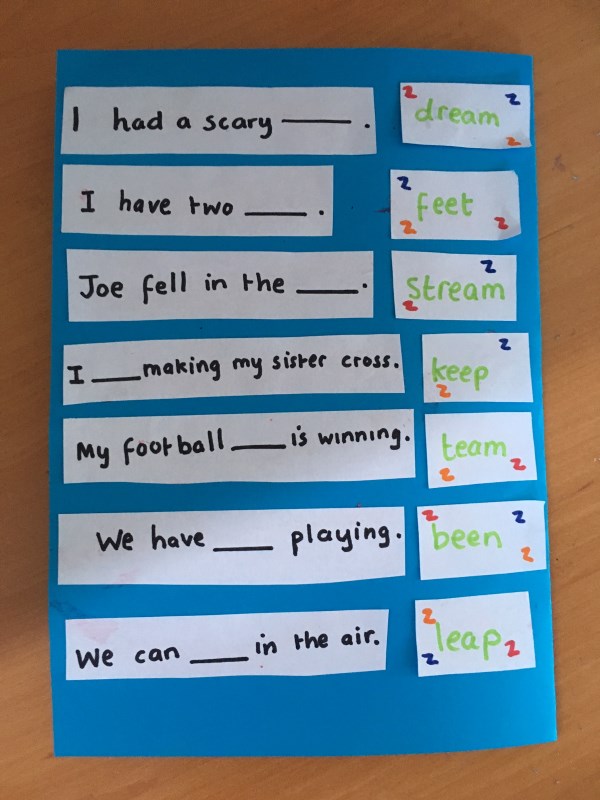 I had a scary ____. dream
I have two ____. feet
Joe fell in the ____. stream
I ____ making my sister cross. keep
My football ____ is winning. team
We have ____ playing. been
We can ____ in the air. leap